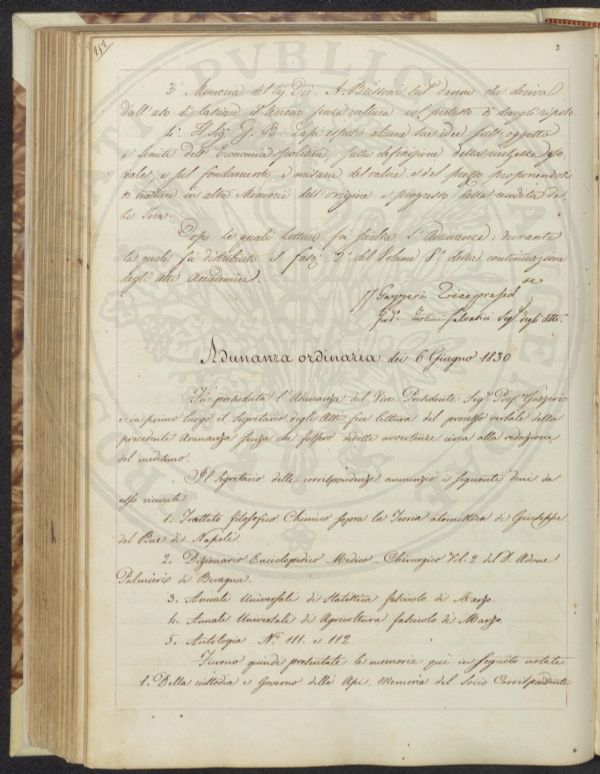 212
3
3. Memoria del Sig. Dre. A. Bistoni sul danno che deriva
dall'uso di lasciare il terreno senza coltura col pretesto di dargli riposo
4. Il Sig. G. B. Lapi espose alcune sue idee sull'oggetto
e limiti dell'Economia politica, sulla definizione della ricchezza so-
ciale, e sul fondamento e misura del valore e del prezzo proponendosi
di trattare in altre Memorie dell'origine e progresso della rendita del-
le terre.
Dopo le quali letture fu sciolta l'Adunanza; durante
la quale fu distribuito il fasc. 2° del Volume 8° della continuazione
degli Atti Accademici.
G. Gazzeri Vicepresid.te
Ferd. Tartini Salvatici Seg. degli Atti.
Adunanza ordinaria dei 6 Giugno 1830
Fu preseduta l'Adunanza dal Vice Presidente Sig.r Prof. Gazzeri
e in primo luogo il Segretario degli Atti fece lettura del processo verbale della
precedente Adunanza senza che fossero dedotte avvertenze circa alla redazione
del medesimo.
Il Segretario delle corrispondenze annunziò i seguenti doni da
esso ricevuti.
1. Trattato filosofico Chimico sopra la Teoria atomistica di Giuseppe
del Bue di Napoli.
2. Dizionario Enciclopedico Medico-Chirurgico Vol. 2 del D. Adone
Palmieri di Bevagna.
3. Annali Universali di Statistica fascicolo di Marzo.
4. Annali Universale di Agricoltura fascicolo di Marzo.
5. Antologia N.° 111. e 112.
Furono quindi presentate le memorie qui in seguito notate
1. Della custodia e Governo delle Api Memoria del Socio Corrispondente